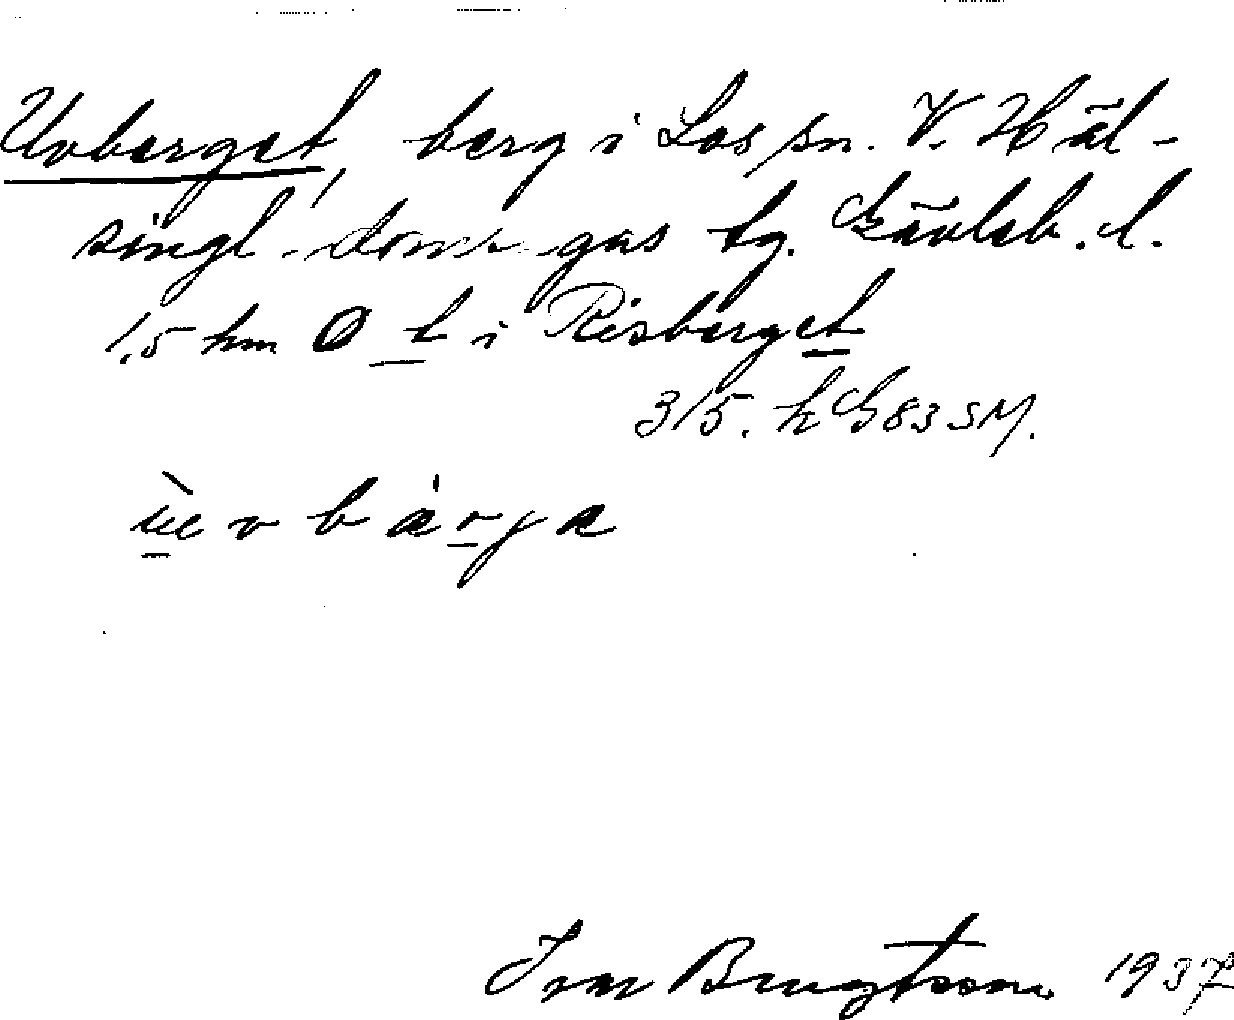 Uvberget, berg i Los sn. V. Häl-
singl. domsagas tg. Gävleb. l.
1,5 km O t i Risberget
3/5. k G 83 SM.
ùe v b ä r j a
Ivar Bengtsson 1937